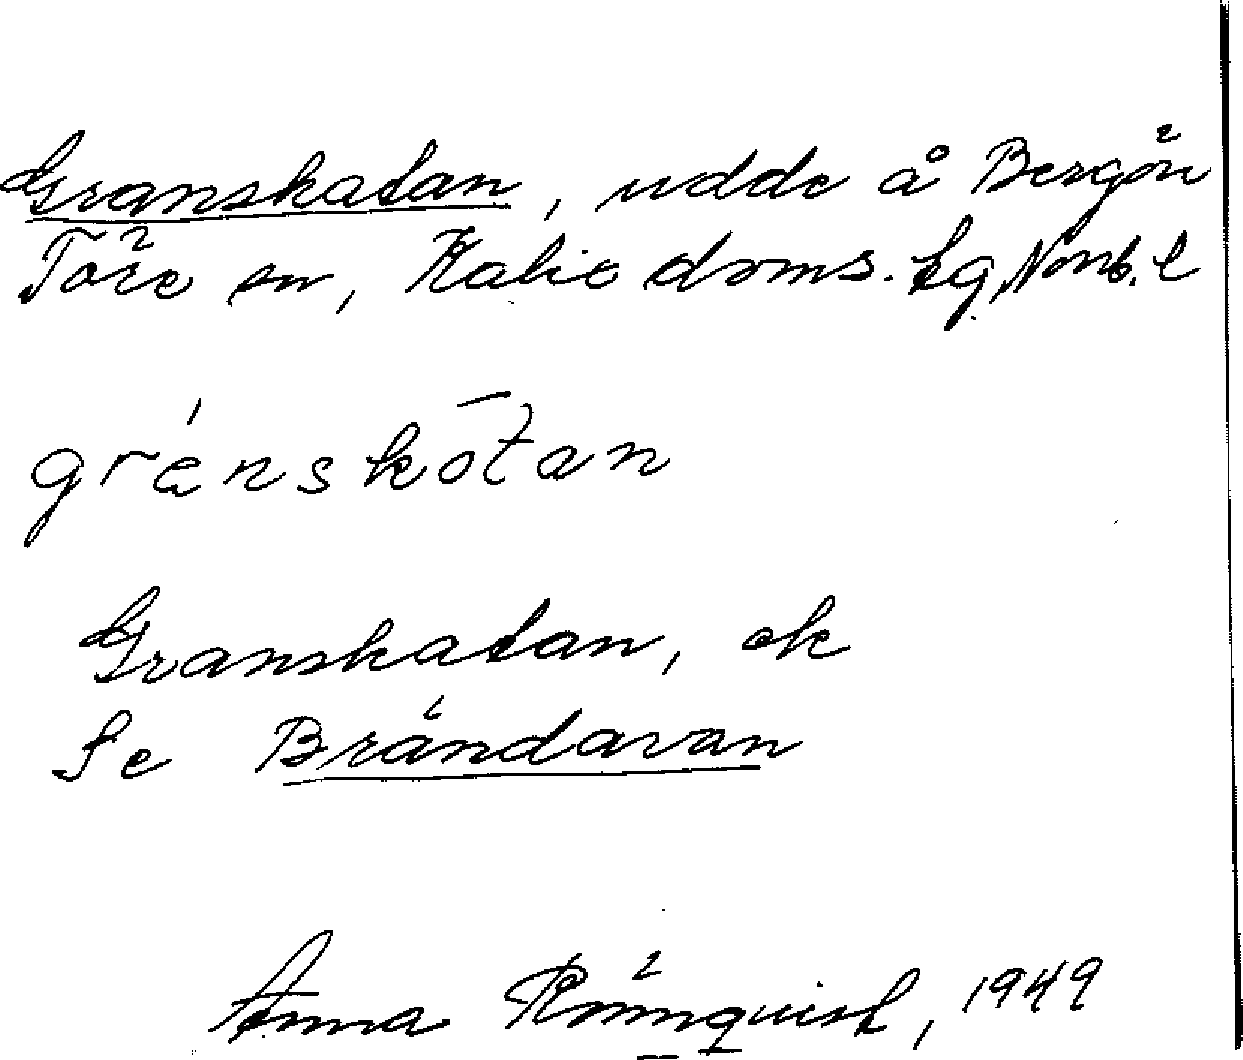 Granskatan, udde å Bergön
Töre sn, Kalix doms. lg, Norrb. l
gránskōtan
Granskatan, ek
Se Brändavan
Anna Rönnquist, 1949